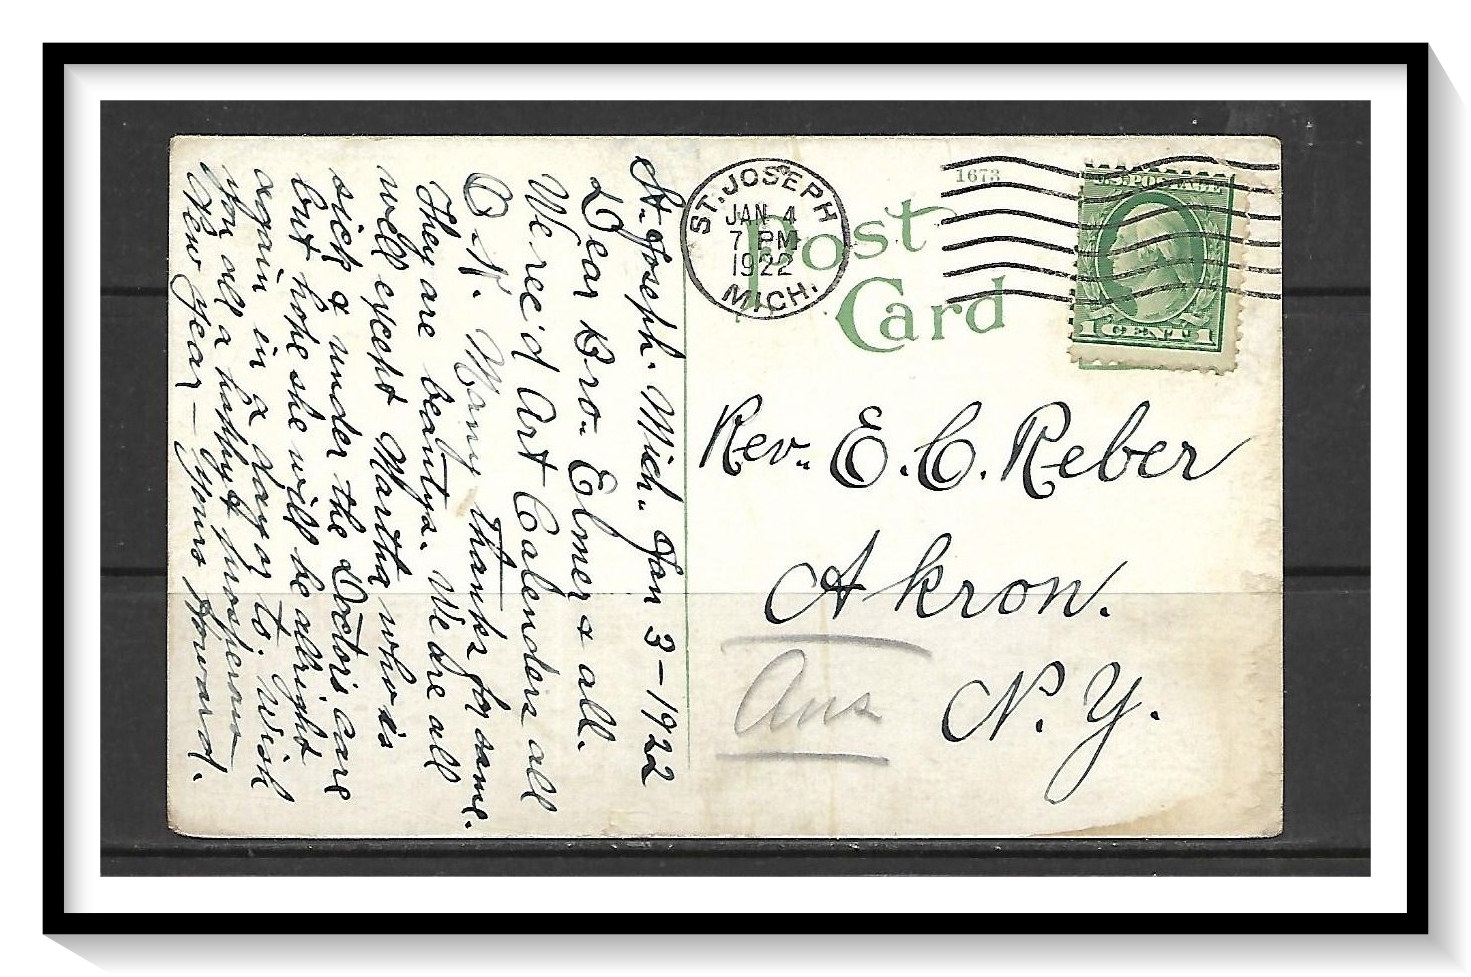 St. Joseph. Mich. Jan 3-1922
Dear Bro. Elmer & all.
We rec'd Art Calenders all
O.K. Many thanks for same.
They are beautys. We are all
well except Martha who is
sick & under the Doctors care
but hope she will be allright
again in a day or to. Wish
you all a happy & prosperous
New year - Yours Howard.
ST. JOSEPH
JAN 4
7 PM
1922
MICH.
1673
Post
Card
U.S. POSTAGE
1 CENT 1
Rev. E. C. Reber
Akron.
Ans
N. Y.